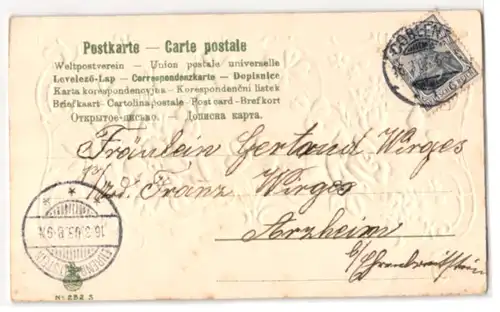 Postkarte — Carte postale
Weltpostverein — Union postale universelle
Levelező-Lap — Correspondenzkarte — Dopisnice
Karta korespondencyjna — Korespondenční listek
Briefkaart — Cartolina postale — Post card — Brefkort
Открытое письмо. — Дописна карта.
COBLENZ
Fräulein Gertaud Wirges
p/ad. Franz Wirges
Arzheim
b/Ehrenbreitstein
EHRENBREITSTEIN
16.3.03.8-9V.
No 252 3